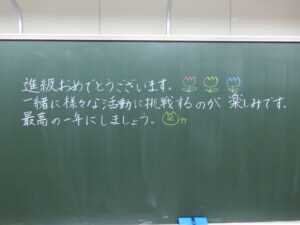 進級おめでとうございます。
一緒に様々な活動に挑戦するのが楽しみです。
最高の一年にしましょう。